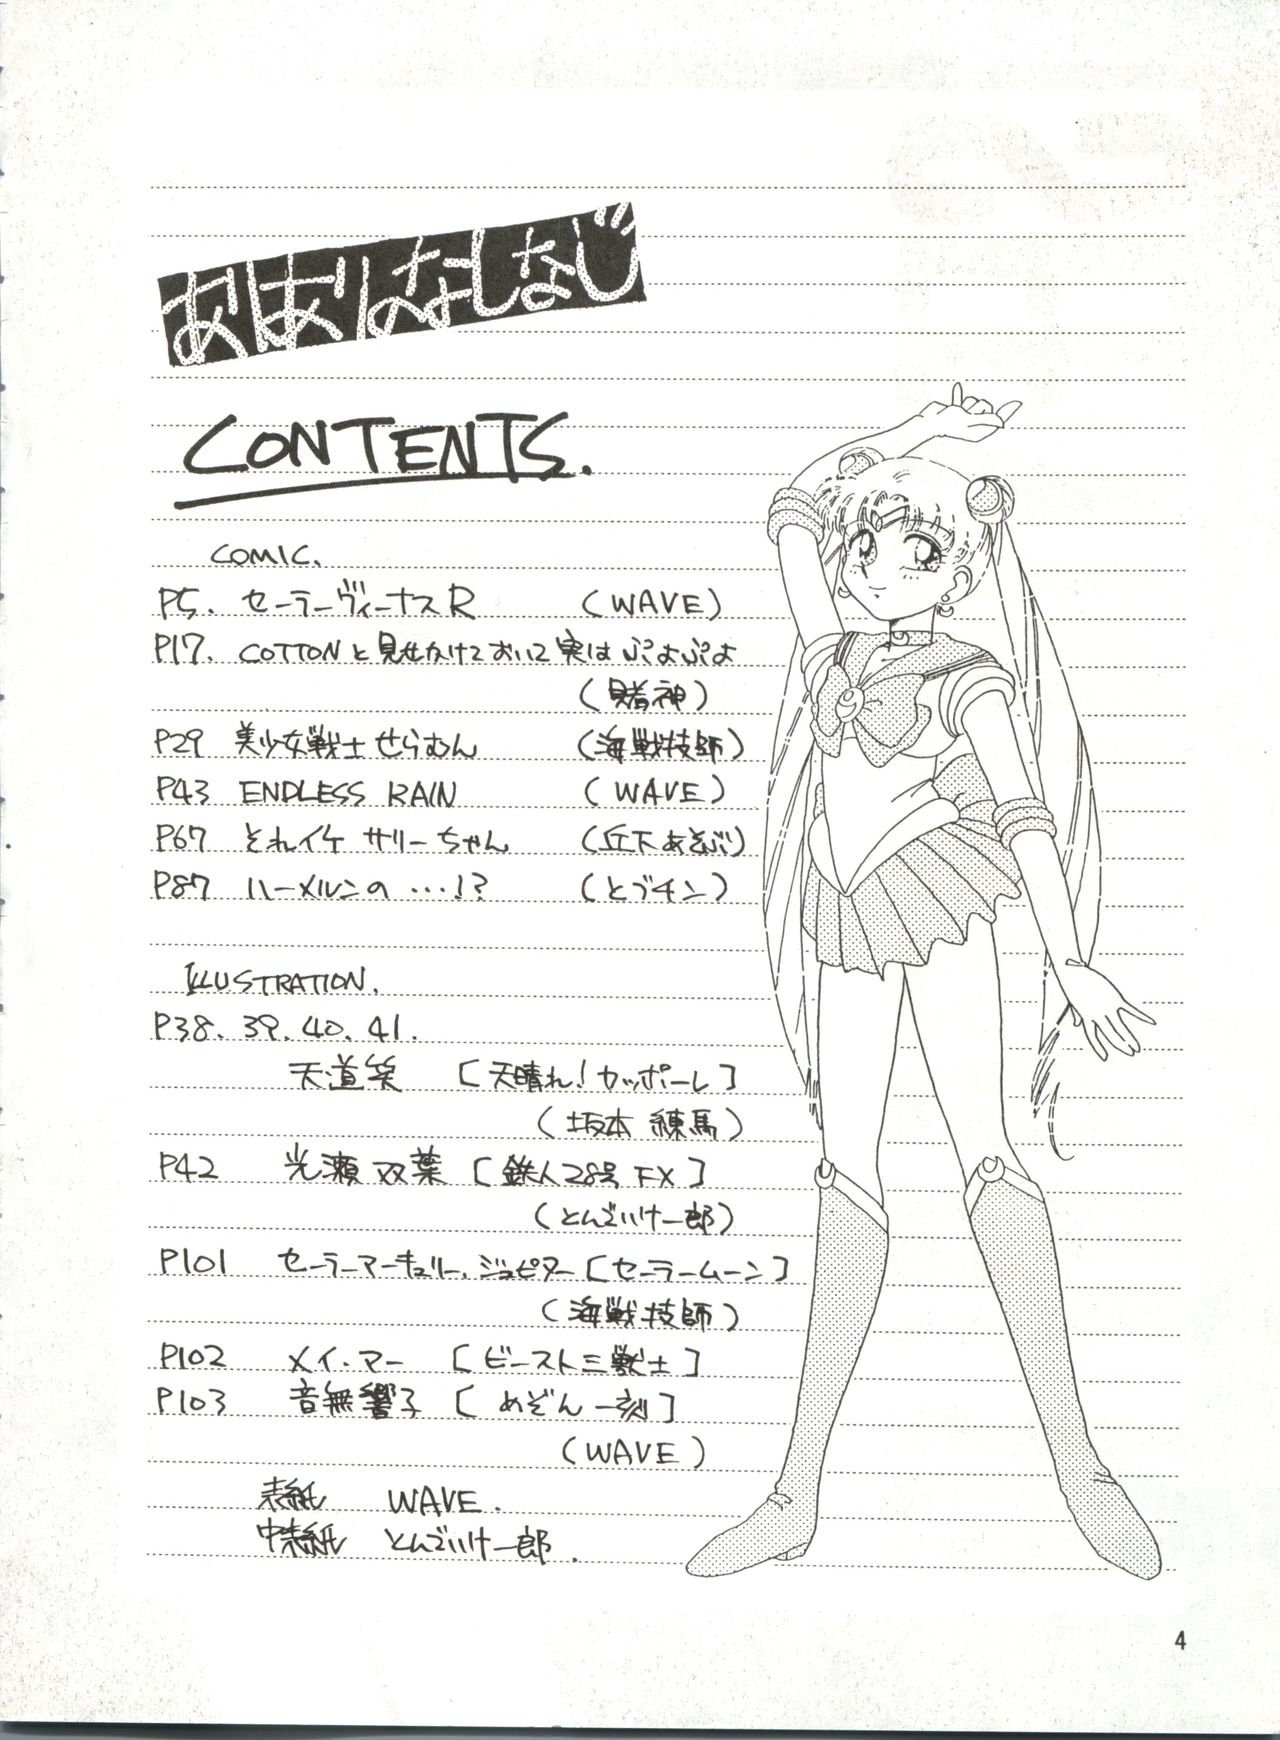 あはありのなしなじ
CONTENTS.
COMIC.
P5. セーラーヴィーナスR (WAVE)
P17. COTTONと見せかけておいて実は ぷよぷよ
(賭神)
P29 美少女戦士せらむん (海戦技師)
P43 ENDLESS RAIN (WAVE)
P67 それイケ サリーちゃん (丘下あそぶ)
P87 ハーメルンの …!? (とブチン)
ILLUSTRATION.
P38.39.40.41.
天道笑 [天晴れ!カッポーレ]
(坂本 練馬)
P42 光瀬 双葉 [鉄人28号FX]
(とんでいけ一郎)
P101 セーラーマーキュリー.ジュピター[セーラームーン]
(海戦技師)
P102 メイ・マー [ビースト三獣士]
P103 音無響子 [めぞん一刻]
(WAVE)
表紙 WAVE.
中表紙 とんでいけ一郎.
4